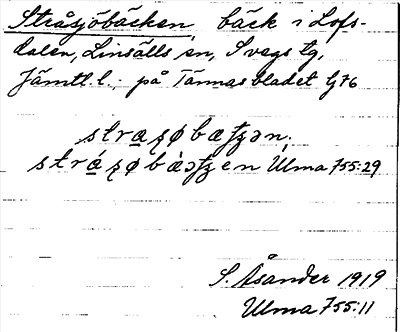 Stråsjöbäcken bäck i Lofs-
dalen, Linsälls sn, Svegs tg,
Jämtl. l.; på Tännasbladet G76
strąʂøbæʈʂən;
strą́ʂøbæ̀ʈʂen Ulma 755:29
S. Åsander 1919
Ulma 755:11